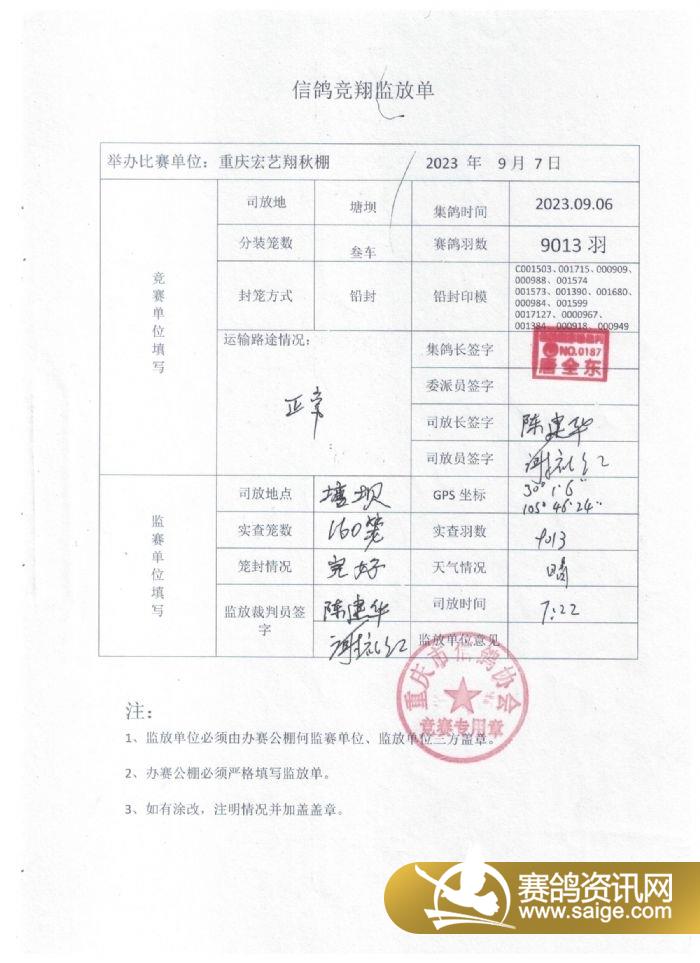 信鸽竞翔监放单
举办比赛单位：重庆宏艺翔秋棚 2023 年 9月 7日
竞赛单位填写
司放地 塘坝 集鸽时间 2023.09.06
分装笼数 叁车 赛鸽羽数 9013 羽
封笼方式 铅封 铅封印模
C001503、001715、000909、
000988、001574
001573、001390、001680、
000984、001599
0017127、0000967、
001384、000918、000949
运输路途情况： 正常
集鸽长签字
NO.0187
唐全东
委派员签字
司放长签字 陈建华
司放员签字
监赛单位填写
司放地点 塘坝 GPS 坐标 30° 1′ 6″
105° 46′ 24″
实查笼数 160笼 实查羽数 9013
笼封情况 完好 天气情况 晴
监放裁判员签字 陈建华 司放时间 7:22
监放单位意见
重庆市信鸽协会
竞赛专用章
注：
1、监放单位必须由办赛公棚何监赛单位、监放单位三方盖章。
2、办赛公棚必须严格填写监放单。
3、如有涂改，注明情况并加盖盖章。
赛鸽资讯网
www.saige.com